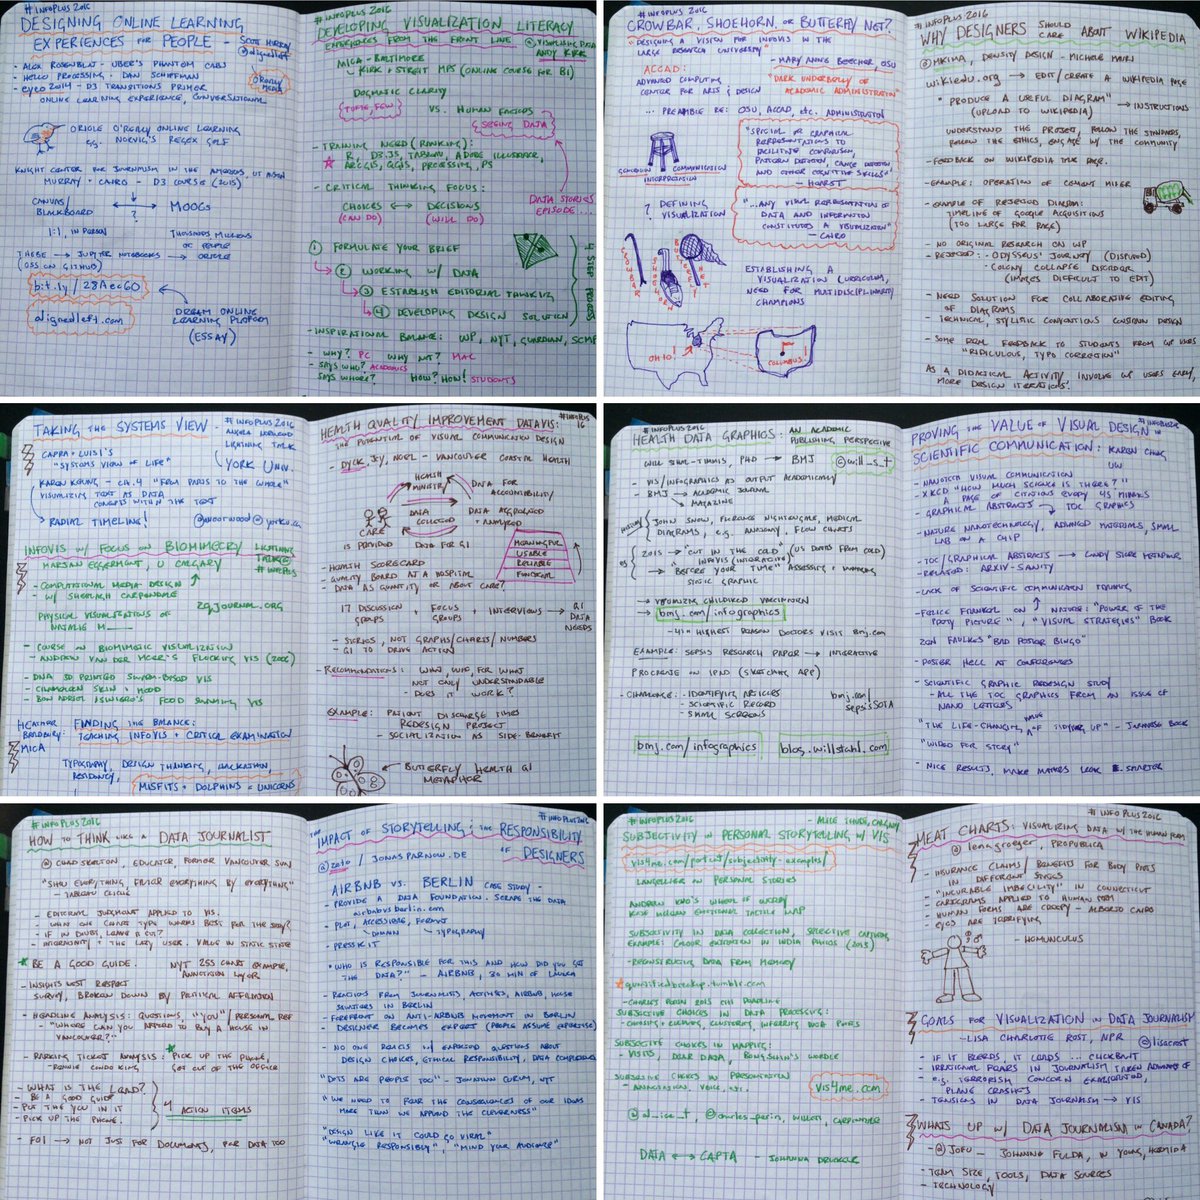 #INFOPLUS 2016
DESIGNING ONLINE LEARNING
EXPERIENCES FOR PEOPLE - SCOTT MURRAY
@alignedleft
- ALEX ROSENBLAT - UBER'S PHANTOM CABS
- HELLO PROCESSING - DAN SHIFFMAN
- eyeo 2014 - D3 TRANSITIONS PRIMER
ONLINE LEARNING EXPERIENCE, CONVERSATIONAL
O'REILLY MEDIA
ORIOLE O'REILLY ONLINE LEARNING
eg. NORVIG'S REGEX GOLF
KNIGHT CENTER FOR JOURNALISM IN THE AMERICAS, UT AUSTIN
MURRAY + CAIRO - D3 COURSE (2015)
CANVAS/
BLACKBOARD
?
MOOCS
1:1, IN PERSON
THOUSANDS, MILLIONS
OF PEOPLE
THEBE → JUPYTER NOTEBOOKS → ORIOLE
(OSS ON GITHUB)
bit.ly/28AecGO
alignedleft.com
DREAM ONLINE
LEARNING PLATFORM
(ESSAY)
#INFOPLUS 2016
DEVELOPING VISUALIZATION LITERACY
EXPERIENCES FROM THE FRONT LINE
@VISUALISING DATA
ANDY KIRK
MICA - BALTIMORE
KIRK + STREIT MPS (ONLINE COURSE FOR BI)
DOGMATIC CLARITY
(TUFTE, FEW)
VS. HUMAN FACTORS
(SEEING DATA)
- TRAINING NEED (RANKING):
R, D3.JS, TABLEAU, ADOBE ILLUSTRATOR,
ARCGIS, QGIS, PROCESSING, PS
- CRITICAL THINKING FOCUS:
CHOICES ↔ DECISIONS
(CAN DO) (WILL DO)
DATA STORIES
EPISODE...
① FORMULATE YOUR BRIEF
② WORKING W/ DATA
③ ESTABLISH EDITORIAL THINKING
④ DEVELOPING DESIGN SOLUTION
4 STEP PROCESS
- INSPIRATIONAL BALANCE: WP, NYT, GUARDIAN, SCMP
- WHY? PC WHY NOT? MAC
- SAYS WHO? ACADEMICS
SAYS WHOM? HOW? HOW! STUDENTS
#INFOPLUS 2016
CROWBAR, SHOEHORN, OR BUTTERFLY NET?
"DESIGNING A VISION FOR INFOVIS IN THE
LARGE RESEARCH UNIVERSITY"
- MARY ANNE BEECHER, OSU
ACCAD:
ADVANCED COMPUTING
CENTER FOR ARTS & DESIGN
"DARK UNDERBELLY OF
ACADEMIC ADMINISTRATION"
... PREAMBLE RE: OSU, ACCAD, etc. ADMINISTRATION
"SPATIAL OR GRAPHICAL
REPRESENTATIONS TO
FACILITATE COMPARISON,
PATTERN DETECTION, CHANGE DETECTION
AND OTHER COGNITIVE SKILLS"
- HEARST
COMMUNICATION
INTERPRETATION
? DEFINING
VISUALIZATION
"...ANY VISUAL REPRESENTATION OF
DATA AND INFORMATION
CONSTITUTES A VISUALIZATION"
- CAIRO
CROWBAR
SHOEHORN
BUTTERFLY
NET
ESTABLISHING A
VISUALIZATION CURRICULUM,
NEED FOR MULTIDISCIPLINARY
CHAMPIONS
OHIO!
COLUMBUS!
#INFOPLUS 2016
WHY DESIGNERS SHOULD
CARE ABOUT WIKIPEDIA
@MKIMA, DENSITY DESIGN - MICHELE MAURI
wikiedu.org → EDIT/CREATE A WIKIPEDIA PAGE
"PRODUCE A USEFUL DIAGRAM" → INSTRUCTIONS
(UPLOAD TO WIKIPEDIA)
UNDERSTAND THE PROJECT, FOLLOW THE STANDARDS,
FOLLOW THE ETHICS, ENGAGE W/ THE COMMUNITY
- FEEDBACK ON WIKIPEDIA TALK PAGE.
- EXAMPLE: OPERATION OF CEMENT MIXER
- EXAMPLE OF REJECTED DIAGRAM:
TIMELINE OF GOOGLE ACQUISITIONS
(TOO LARGE FOR PAGE)
- NO ORIGINAL RESEARCH ON WP
- REJECTED: - ODYSSEUS' JOURNEY (DISPUTED)
- COLONY COLLAPSE DISORDER
(IMAGES DIFFICULT TO EDIT)
- NEED SOLUTION FOR COLLABORATIVE EDITING
OF DIAGRAMS
- TECHNICAL, STYLISTIC CONVENTIONS CONSTRAIN DESIGN
- SOME REAL FEEDBACK TO STUDENTS FROM WP USERS
"RIDICULOUS, TYPO CORRECTION"
AS A DIDACTICAL ACTIVITY INVOLVE WP USERS EARLY,
MORE DESIGN ITERATIONS!
TAKING THE SYSTEMS VIEW -
#INFOPLUS 2016
ANGELA NORWOOD
LIGHTNING TALK
YORK UNIV.
CAPRA + LUISI'S
"SYSTEMS VIEW OF LIFE"
- CH. 4 "FROM PARTS TO THE WHOLE"
VISUALIZING TEXT AS DATA
CONCEPTS WITHIN THE TEXT
RADIAL TIMELINE!
@yorku.ca
INFOVIS W/ FOCUS ON BIOMIMICRY LIGHTNING
TALK @
#INFOPLUS
MARJAN EGGERMONT, U CALGARY
- COMPUTATIONAL MEDIA DESIGN
- W/ SHEELAGH CARPENDALE
zqjournal.org
PHYSICAL VISUALIZATIONS OF
NATALIE M
- COURSE ON BIOMIMETIC VISUALIZATION
- ANDREW VANDE MOERE'S FLOCKING VIS (2006)
- DNA 3D PRINTED SWARM-BASED VIS
- CHAMELEON SKIN + MOOD
FOOD SUMMING VIS
HEATHER
BRADBURY:
MICA
FINDING THE BALANCE:
TEACHING INFOVIS + CRITICAL EXAMINATION
TYPOGRAPHY, DESIGN THINKING, HACKATHON,
RESIDENCY,
MISFITS + DOLPHINS = UNICORNS
HEALTH QUALITY IMPROVEMENT DATAVIS:
#INFOPLUS
16
THE POTENTIAL OF VISUAL COMMUNICATION DESIGN
- VANCOUVER COASTAL HEALTH
HEALTH
MINISTRY
DATA FOR
ACCOUNTABILITY
CARE
DATA
COLLECTED
DATA AGGREGATED
+ ANALYZED
IS PROVIDED DATA FOR QI
MEANINGFUL
USABLE
RELIABLE
FUNCTIONAL
- HEALTH SCORECARD
- QUALITY BOARD AT A HOSPITAL
- DATA AS QUANTITY OR ABOUT CARE?
17 DISCUSSION + FOCUS + INTERVIEWS → QI
GROUPS GROUPS DATA
NEEDS
- STORIES, NOT GRAPHS/CHARTS/NUMBERS
- QI TO DRIVE ACTION
- RECOMMENDATIONS: WHAT, WHO, FOR WHAT
NOT ONLY UNDERSTANDABLE
- DOES IT WORK?
EXAMPLE: PATIENT DISCHARGE TIMES
REDESIGN PROJECT
- SOCIALIZATION AS SIDE-BENEFIT
BUTTERFLY HEALTH QI
METAPHOR
#INFOPLUS 2016
HEALTH DATA GRAPHICS: AN ACADEMIC
PUBLISHING PERSPECTIVE
WILL STAHL-TIMMINS, PHD → BMJ
@will_s_t
- VIS/INFOGRAPHICS AS OUTPUT ACADEMICALLY
- BMJ → ACADEMIC JOURNAL
→ MAGAZINE
HISTORY
JOHN SNOW, FLORENCE NIGHTINGALE, MEDICAL
DIAGRAMS, e.g. ANATOMY, FLOW CHARTS
eg
2015 → "OUT IN THE COLD" (US DEATHS FROM COLD)
→ INFOVIS (INTERACTIVE)
→ "BEFORE YOUR TIME"
STATIC GRAPHIC
→ VISUALIZING CHILDHOOD VACCINATION
→ bmj.com/infographics
- 4TH HIGHEST REASON DOCTORS VISIT bmj.com
EXAMPLE: SEPSIS RESEARCH PAPER → INTERACTIVE
PROCREATE ON IPAD (SKETCHING APP)
- CHALLENGE: - IDENTIFYING ARTICLES
- SCIENTIFIC RECORD
- SMALL SCREENS
bmj.com/
sepsisSOTA
bmj.com/infographics
blog.willstahl.com
#INFOPLUS 2016
PROVING THE VALUE OF VISUAL DESIGN IN
SCIENTIFIC COMMUNICATION: KAREN CHENG
UW
- NANOTECH VISUAL COMMUNICATION
- XKCD "HOW MUCH SCIENCE IS THERE?"
A PAGE OF CITATIONS EVERY 45 MINUTES
- GRAPHICAL ABSTRACTS → TOC GRAPHICS
- NATURE NANOTECHNOLOGY, ADVANCED MATERIALS, SMALL
LAB ON A CHIP
- TOC/GRAPHICAL ABSTRACTS → CANDY STORE METAPHOR
- RELATED: ARXIV-SANITY
- LACK OF SCIENTIFIC COMMUNICATION TRAINING
- FELICE FRANKEL ON NATURE: "POWER OF THE
PRETTY PICTURE", "VISUAL STRATEGIES" BOOK
ZEN FAULKES "BAD POSTER BINGO"
- POSTER HELL AT CONFERENCES
- SCIENTIFIC GRAPHIC REDESIGN STUDY
- ALL THE TOC GRAPHICS FROM AN ISSUE OF
NANO LETTERS
"THE LIFE-CHANGING MAGIC OF TIDYING UP" - JAPANESE BOOK
"WIDEO FOR STORY"
- NICE RESULTS, MAKE MAKERS LOOK SMARTER
#INFOPLUS 2016
HOW TO THINK LIKE A DATA JOURNALIST
@CHADSKELTON, EDUCATOR, FORMER VANCOUVER SUN
"SHOW EVERYTHING, FILTER EVERYTHING BY EVERYTHING"
- TABLEAU CLICHÉ
- EDITORIAL JUDGMENT APPLIED TO VIS.
- WHAT ONE CHART TYPE WORKS BEST FOR THE STORY?
- IF IN DOUBT, LEAVE IT OUT.
- INTERACTIVITY + THE LAZY USER. VALUE IN STATIC STATE
BE A GOOD GUIDE. NYT 255 CHART EXAMPLE,
ANNOTATION LAYER
- INSIGHTS WEST RESPECT
SURVEY, BROKEN DOWN BY POLITICAL AFFILIATION
- HEADLINE ANALYSIS: QUESTIONS, "YOU"/PERSONAL REF
- "WHERE CAN YOU AFFORD TO BUY A HOUSE IN
VANCOUVER?"
- PARKING TICKET ANALYSIS: PICK UP THE PHONE,
GET OUT OF THE OFFICE
- WHAT IS THE LEAD?
- BE A GOOD GUIDE
- PUT THE YOU IN IT
- PICK UP THE PHONE.
4
ACTION ITEMS
- FOI → NOT JUST FOR DOCUMENTS, FOR DATA TOO
#INFOPLUS 2016
THE IMPACT OF STORYTELLING & THE RESPONSIBILITY
OF DESIGNERS
@Z010/JONASPARNOW.DE
AIRBNB VS. BERLIN CASE STUDY -
- PROVIDE A DATA FOUNDATION. SCRAPE THE DATA
airbnbvsberlin.com
- PLOT, ACCESSIBLE, FORMAT
DOMAIN TYPOGRAPHY
- PRESS KIT
- "WHO IS RESPONSIBLE FOR THIS AND HOW DID YOU GET
THE DATA?" - AIRBNB, 30 MIN OF LAUNCH
- REACTIONS FROM JOURNALISTS, ACTIVISTS, AIRBNB, HOUSE
SQUATTERS IN BERLIN
- FOREFRONT ON ANTI-AIRBNB MOVEMENT IN BERLIN
- DESIGNER BECOMES EXPERT (PEOPLE ASSUME EXPERTISE)
- NO ONE REACTS W/ EXPECTED QUESTIONS ABOUT
DESIGN CHOICES, ETHICAL RESPONSIBILITY, DATA COMPLETENESS
"DOTS ARE PEOPLE TOO" - JONATHAN CORUM, NYT
"WE NEED TO FEAR THE CONSEQUENCES OF OUR IDEAS
MORE THAN WE APPLAUD THE CLEVERNESS"
"DESIGN LIKE IT COULD GO VIRAL"
"WRANGLE RESPONSIBLY", "MIND YOUR AUDIENCE"
#INFOPLUS 2016
- ALICE THUDT, CALGARY
SUBJECTIVITY IN PERSONAL STORYTELLING W/ VIS
vis4me.com/portfolio/subjectivity-examples/
LANGELLIER ON PERSONAL STORIES
WHEEL OF
EMOTIONAL TACTILE MAP
SUBJECTIVITY IN DATA COLLECTION, SELECTIVE CAPTURING
EXAMPLE: COLOUR EXTRACTION IN INDIA PHOTOS (2015)
- RECONSTRUCTING DATA FROM MEMORY
quantifiedbreakup.tumblr.com
SUBJECTIVE CHOICES IN DATA PROCESSING:
SUBJECTIVE CHOICES IN MAPPING:
- VISITS, DEAR DATA, WORDLE
SUBJECTIVE CHOICES IN PRESENTATION
- ANNOTATION, VOICE, etc.
vis4me.com
@al_ice_t @charles_perin, WILLETT, CARPENDALE
DATA ↔ CAPTA - JOHANNA DRUCKER
#INFOPLUS 2016
MEAT CHARTS: VISUALIZING DATA W/ THE HUMAN FORM
@lenagroeger, PROPUBLICA
- INSURANCE CLAIMS/BENEFITS FOR BODY PARTS
IN DIFFERENT STATES
- "INCURABLE IMBECILITY" IN CONNECTICUT
- CARTOGRAMS APPLIED TO HUMAN FORM
- HUMAN FORMS ARE CREEPY - ALBERTO CAIRO
- EYES ARE TERRIFYING
- HOMUNCULUS
GOALS FOR VISUALIZATION IN DATA JOURNALISM
- LISA CHARLOTTE ROST, NPR
@lisacrost
- IF IT BLEEDS, IT LEADS ... CLICKBAIT
- IRRATIONAL FEARS IN JOURNALISM TAKEN ADVANTAGE OF
- e.g. TERRORISM CONCERN EXAGGERATED,
PLANE CRASHES
- TENSIONS IN DATA JOURNALISM → VIS
WHAT'S UP W/ DATA JOURNALISM IN CANADA?
- @JOFU - JOHANNA FULDA,
- TEAM SIZE, TOOLS, DATA SOURCES
- TECHNOLOGY